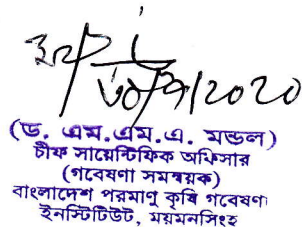 ২০২০
(ড. এম.এম.এ. মন্ডল)
চীফ সায়েন্টিফিক অফিসার
(গবেষণা সমন্বয়ক)
বাংলাদেশ পরমাণু কৃষি গবেষণা
ইনস্টিটিউট, ময়মনসিংহ